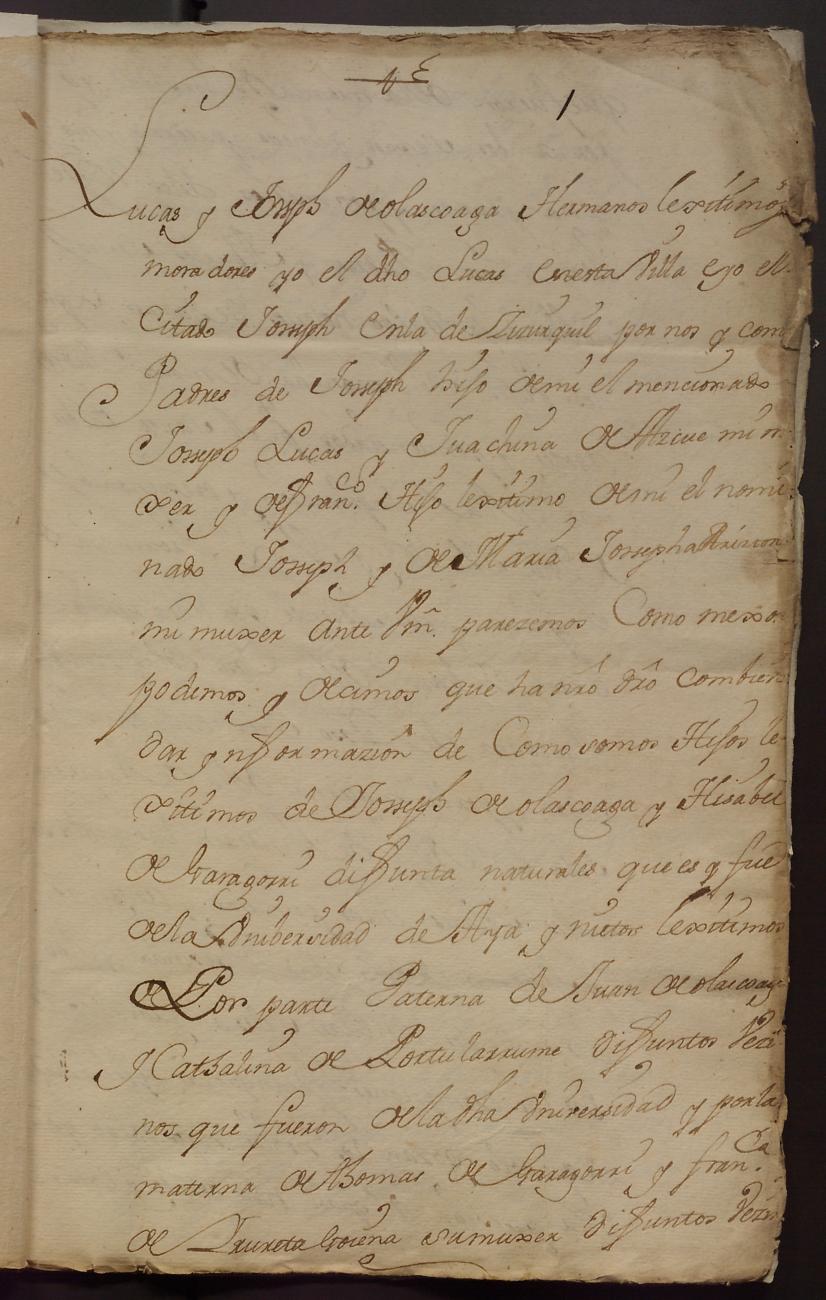 1
Lucas y Joseph de olascoaga Hermanos lexitimos
moradores yo el dho Lucas enesta Villa eyo el
Citado Joseph enla de Zizurquil por nos y como
Padres de Joseph hijo demi el mencionado
Joseph Lucas y Juachina de Azcue mi m
xer y de Franco. Hijo lexitimo demi el nomi
nado Joseph y de Maria Josepha
mi muxer ante Vm. parezemos Como mexor
podemos y decimos que ha nrô drô combien
dar ynformazion de Como somos Hijos le
xitimos de Joseph de olascoaga y Hisabel
de Garagorri difunta naturales que es y fue
de la Vniversidad de Aya y nietos lexitimos
de Por parte Paterna de Juan de olascoaga
y Cathalina de Portularrume difuntos Vezi
nos que fueron de la dha Vniversidad y por la
materna de thomas de Garagorri y franca.
de Irureta Goiena su muxer difuntos Vezin